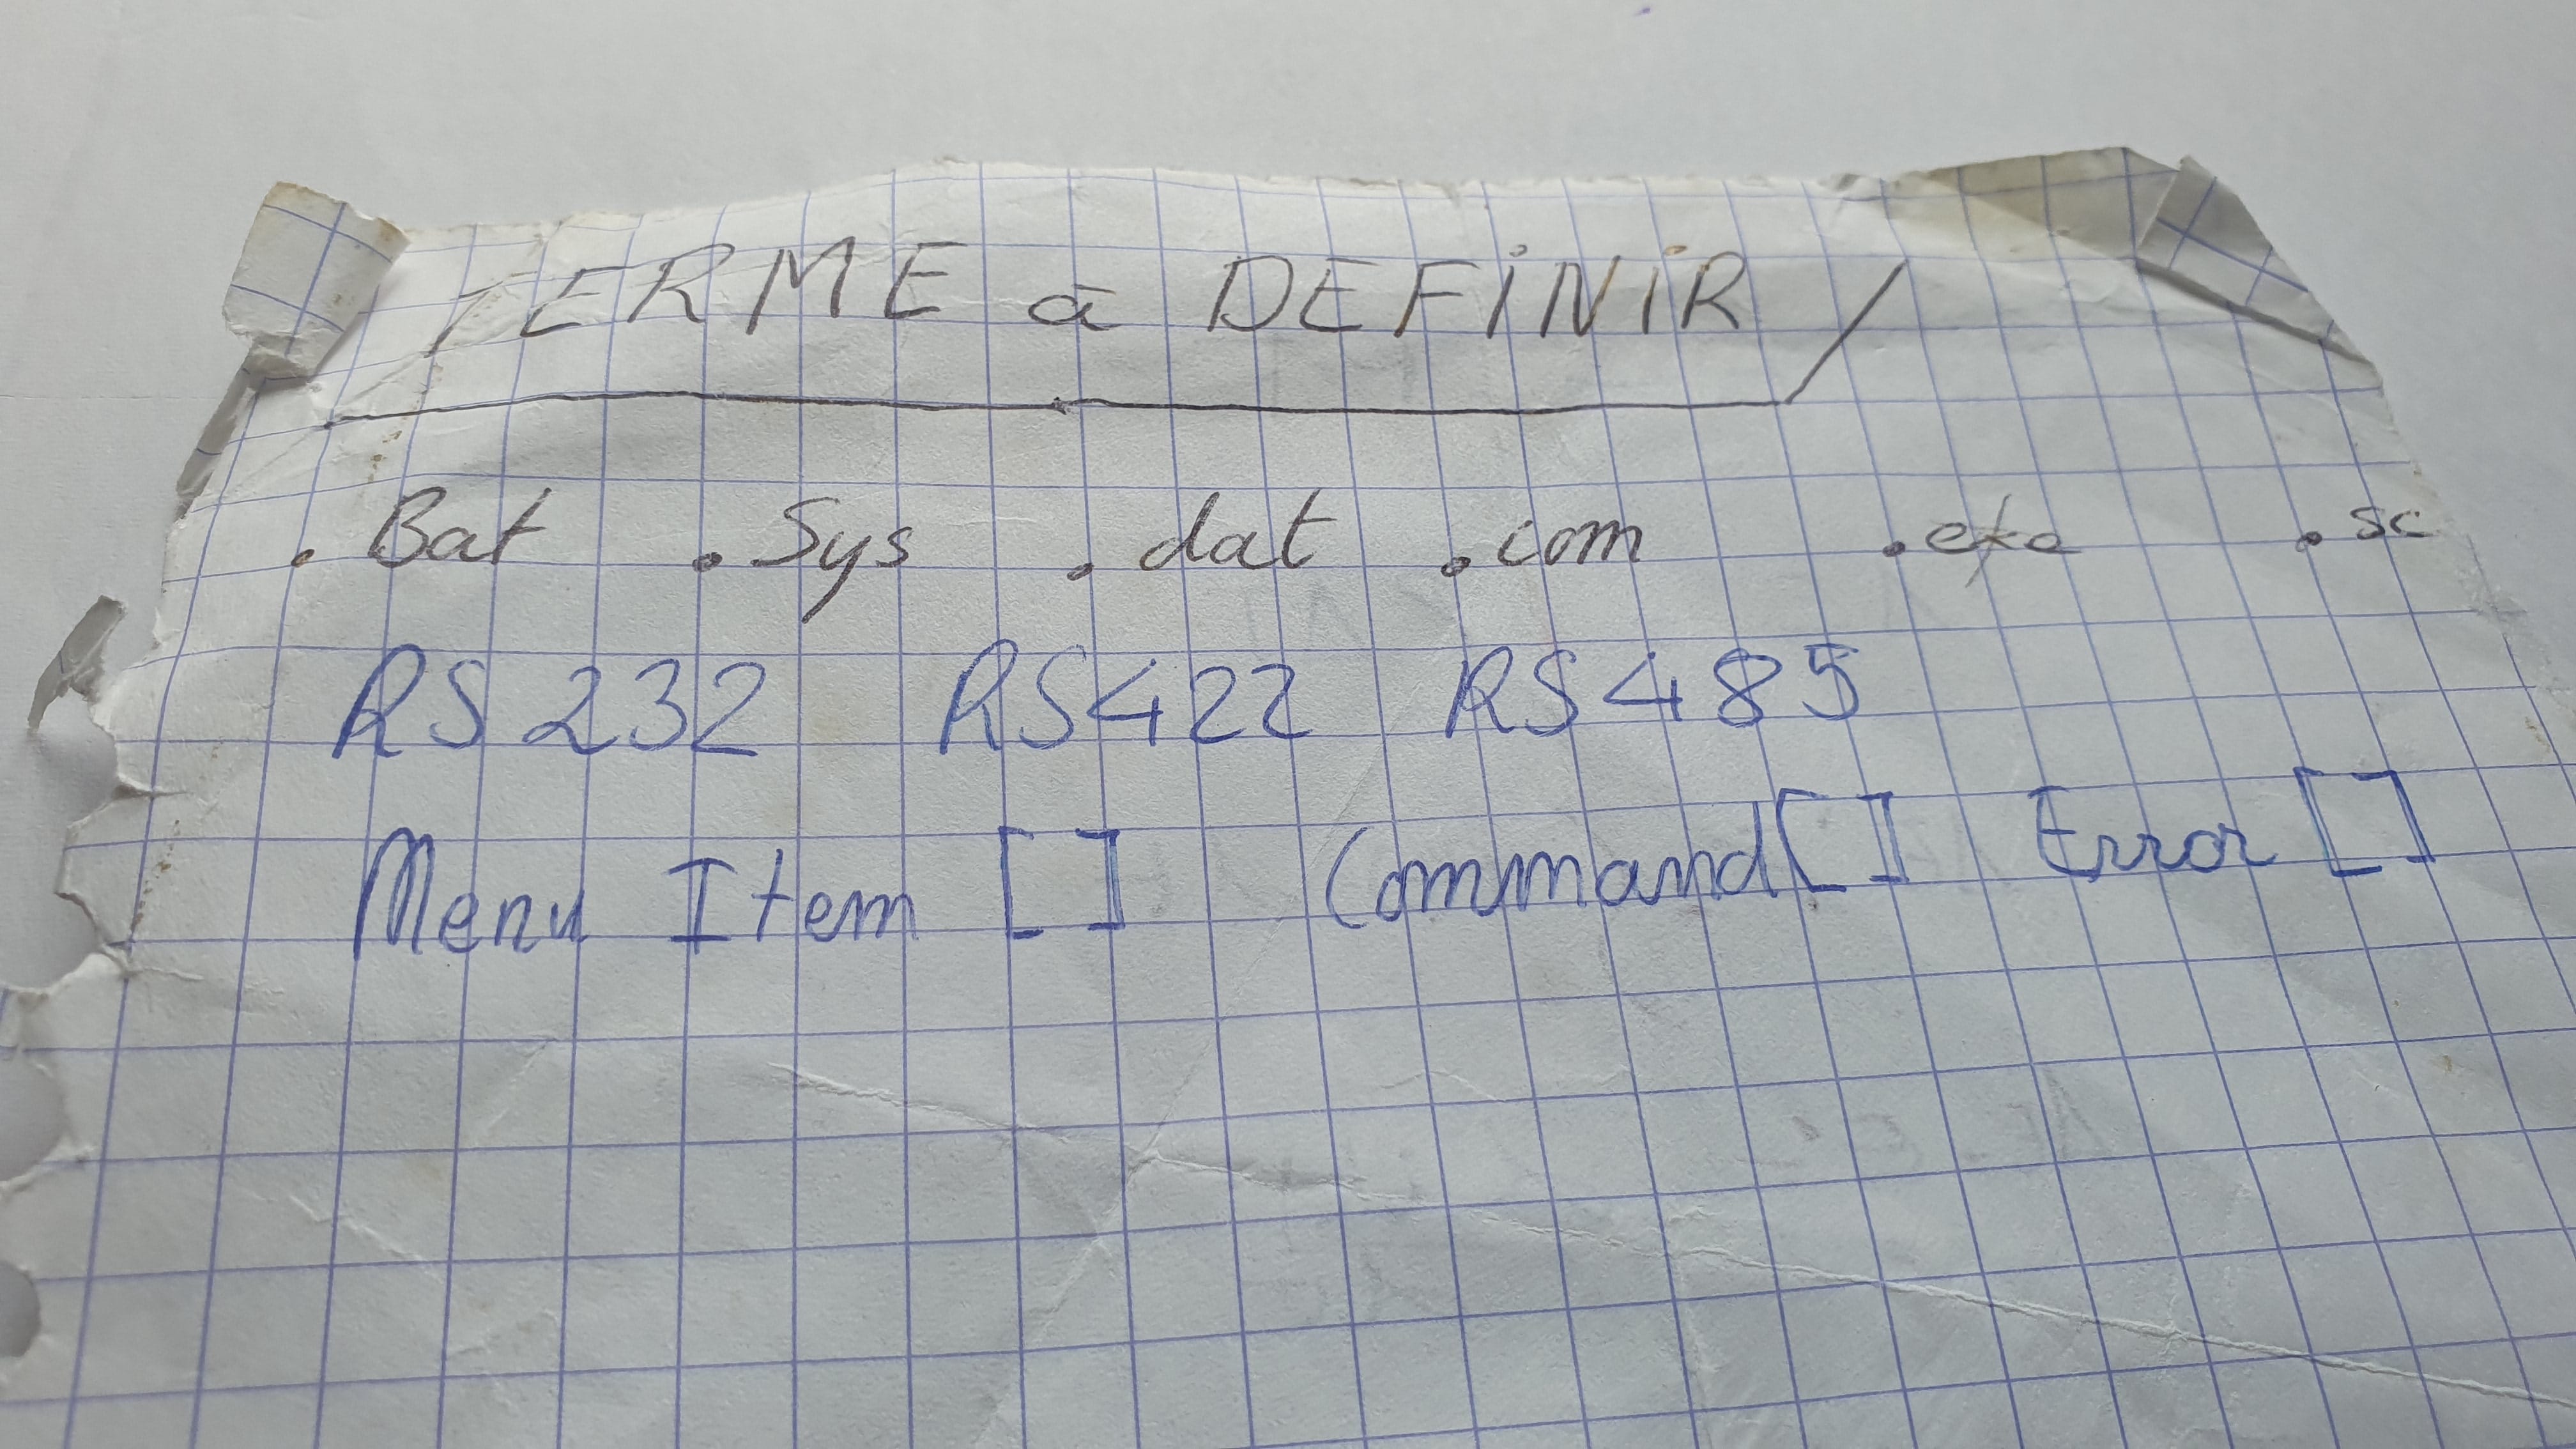 TERME à DEFINIR /
. Bat . Sys . dat . com . exe . sc
RS 232 RS 422 RS 485
Menu Item [ ] Command [ ] Error [ ]